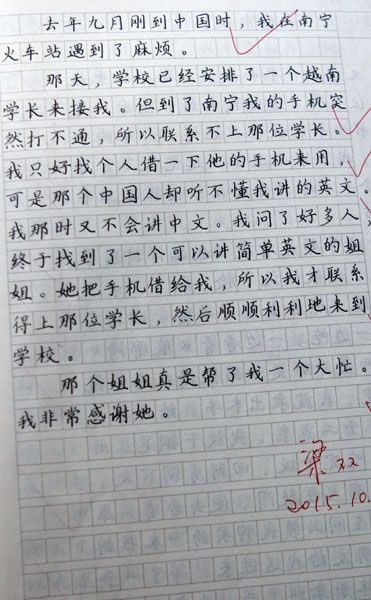 去年九月刚到中国时，我在南宁
火车站遇到了麻烦。
那天，学校已经安排了一个越南
学长来接我。但到了南宁我的手机突
然打不通，所以联系不上那位学长。
我只好找个人借一下他的手机来用，
可是那个中国人却听不懂我讲的英文。
我那时又不会讲中文。我问了好多人，
终于找到了一个可以讲简单英文的姐
姐。她把手机借给我，所以我才联系
得上那位学长，然后顺顺利利地来到
学校。
那个姐姐真是帮了我一个大忙。
我非常感谢她。
2015.10.